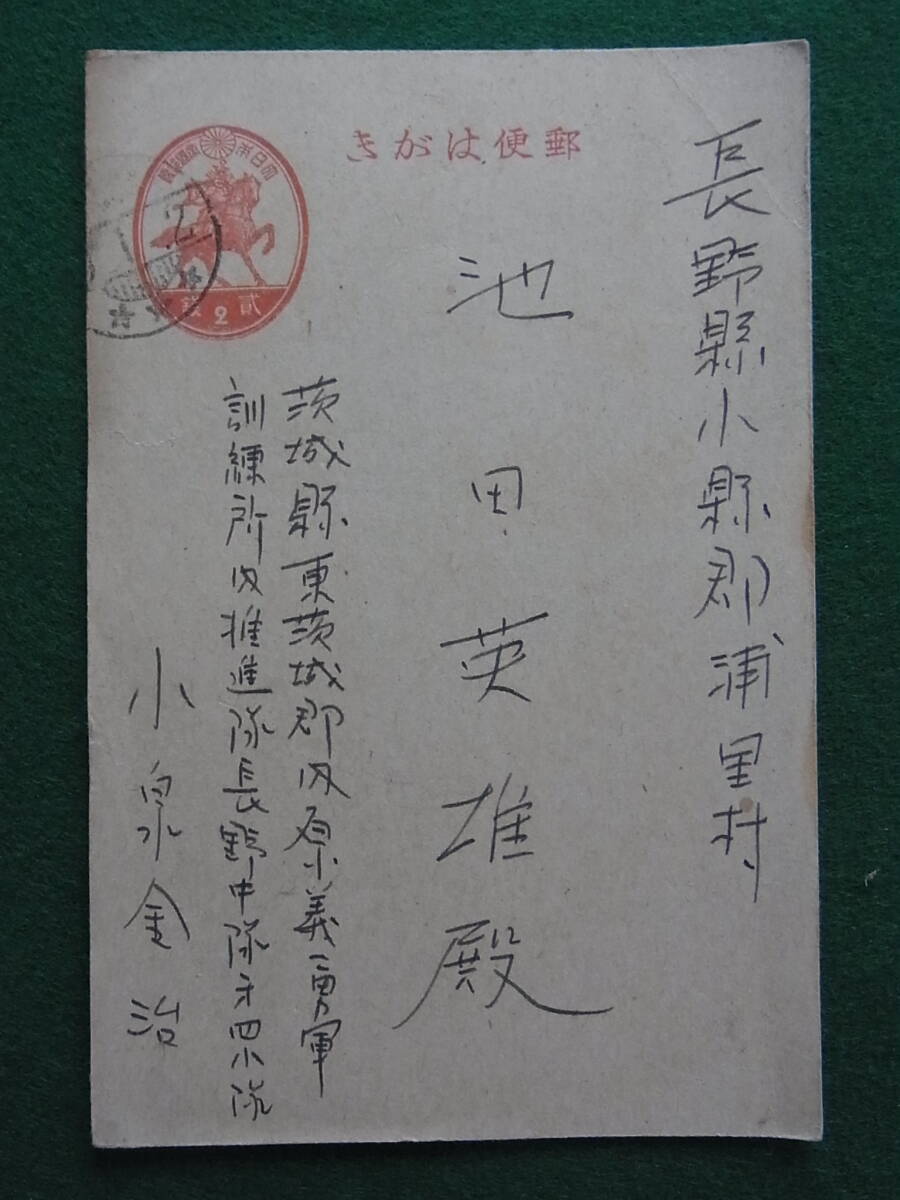 長野縣小縣郡浦里村
きがは便郵
池田英雄殿
茨城縣東茨城郡内原義勇軍
訓練所内推進隊長野中隊才四小隊
小泉金治
貳 2 錢